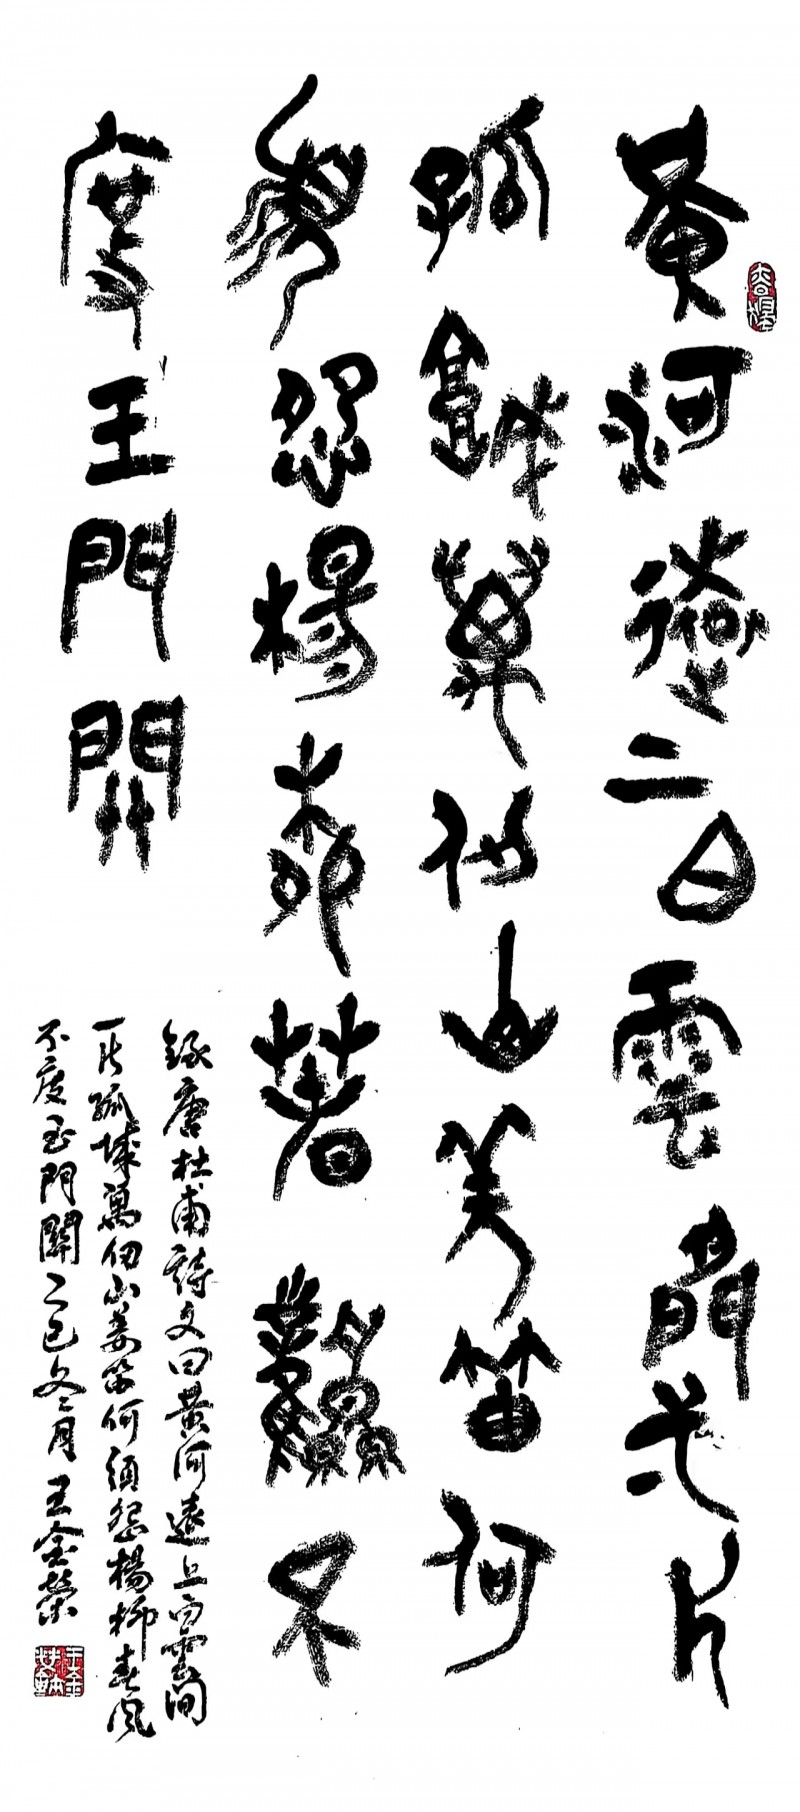 黃河遠二白雲間一片
孤城萬仞山羌笛何
須怨楊柳春風不
度玉門關
錄唐杜甫詩文曰黃河遠上白雲間
一片孤城萬仞山羌笛何須怨楊柳春風
不度玉門關乙巳冬月王金榮